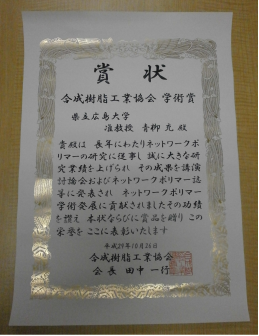 賞状
合成樹脂工業協会 学術賞
県立広島大学
准教授 青柳 充 殿
貴殿は 長年にわたりネットワークポ
リマーの研究に従事し 誠に大きな研
究業績を上げられ その成果を講演
討論会およびネットワークポリマー誌
等に発表され ネットワークポリマー
学術発展に貢献されました その功績
を讃え 本状ならびに賞品を贈り この
栄誉をここに表彰いたします
平成29年10月26日
合成樹脂工業協会
会長 田中 一行